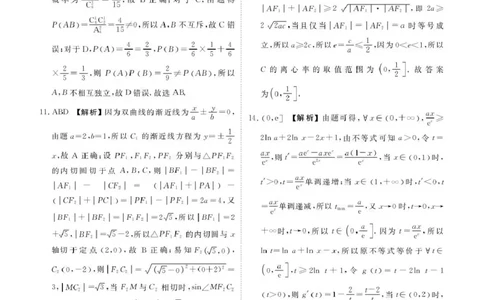 P(AB)=C¹₂C¹₄/A²₆=4/15≠0,所以 A,B 不互斥,故 C 错
误;对于 D,P(A)=4/6=2/3,P(B)=2/6×1/5+4/6
×2/5=1/3,则 P(A)P(B)=2/9≠P(AB),所以
A,B 不相互独立,故 D 错误.故选 AB.
11.ABD 【解析】因为双曲线的渐近线为 x/a±y/b=0,
由题 a=2,b=1,所以 C₁ 的渐近线方程为 y=±1/2
x,故 A 正确;设 PF₁,F₁F₂,PF₂ 分别与△PF₁F₂
的内切圆切于点 A,B,C,则|BF₁|-|BF₂|=
|AF₁|-|CF₂|=(|AF₁|+|PA|)-
(|CF₂|+|PC|)=|PF₁|-|PF₂|=2a=4,又
|BF₁|+|BF₂|=|F₁F₂|=2√5,所以|BF₁|=2
+√5,|BF₂|=√5-2,所以△PF₁F₂ 的内切圆与 x
轴切于定点(2,0),故 B 正确;易知 F₂(√5,0),
C₂(0,-2),则|F₂C₂|=√((√5-0)²+(0+2)²)=
3,|MC₂|=√3,当 F₂M 与 C₂ 相切时,sin∠MF₂C₂
|AF₁|+|BF₁|≥2√(|AF₁|·|BF₁|),即 2a≥
2√(2ac),当且仅当|AF₁|=|BF₁|=a 时等号成
立,所以 a≥2c,所以 e=c/a≤1/2,因为 0<e<1,所以
C 的离心率的取值范围为(0,1/2].故答案
为(0,1/2].
14.(0,e] 【解析】由题可得,∀x∈(0,+∞),ax/eˣ≥
2ln a+2ln x-2x+1,由不等式可知 a>0,令 t=
ax/eˣ,则 t′=(aeˣ-axeˣ)/e²ˣ=a(1-x)/eˣ,当 x∈(0,1)时,
t′>0,t=ax/eˣ单调递增;当 x∈(1,+∞)时,t′<0,t
=ax/eˣ单调递减,所以 tmax=a/e,又 x→0 时,t→0,x→
+∞时,t→0,所以 t∈(0,a/e].因为 t=ax/eˣ,所以
ln t=ln a+ln x-x,所以原不等式等价于∀t∈
(0,a/e],t≥2ln t+1,令 g(t)=t-2ln t-1
(t>0),则 g′(t)=1-2/t=(t-2)/t,当 t∈(0,2)时,